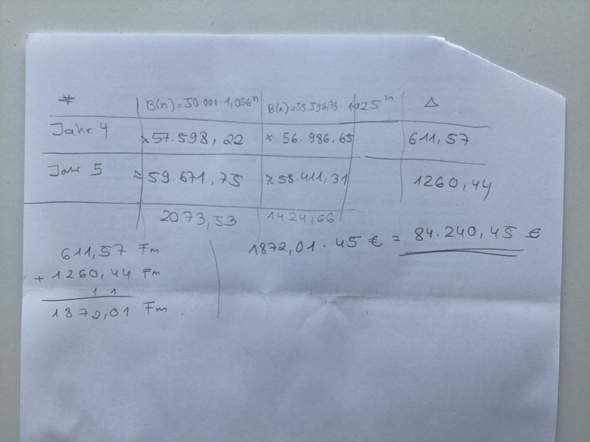 * B(n)=50.000·1,036ⁿ B(n)=55.596,75 1,025ⁿ Δ
Jahr 4 ≈57.598,22 ≈ 56.986,65 611,57
Jahr 5 ≈59.671,75 ≈58.411,31 1260,44
2073,53 1424,66
611,57 Fm 1872,01 · 45 € = 84.240,45 €
+ 1260,44 Fm
1 1
1872,01 Fm